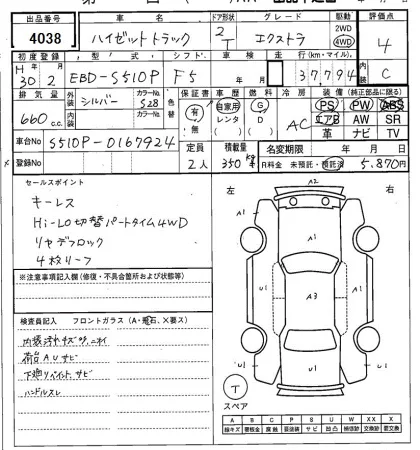 出品番号 車名 ドア形状 グレード 駆動 評価点
4038 ハイゼットトラック 2 T エクストラ 2WD 4WD 4
初度登録 型式 シフト 車検 走行(km・マイル) 内装
H 30年 2月 EBD-S510P F5 年 月 37,794 C
排気量 外装 シルバー カラーNo. S28 色替 保証書 車歴 燃料 冷房 装備(純正部品に限る)
660 c.c. 内装 カラーNo. 有 無 自家用 レンタ G D AC PS PW ABS
エアB AW SR
革 ナビ TV
車台No S510P-0167924 定員 積載量 名変期限 年 月 日
登録No 2人 350kg R料金 未預託・預託済 5,870円
セールスポイント
キーレス
Hi-Lo切替パートタイム4WD
リヤデフロック
4枚リーフ
※注意事項記入欄(修復・不具合箇所および状態等)
検査員記入 フロントガラス(A・飛石、X要ス)
内装汚れキズ
荷台AUサビ
下廻りペイント、サビ
ハンドルスレ
左 右
A2
A1 A1
U1 A3 U1
U1
T
スペア
A B C P S U W XX X
線キズ 要板金 腐蝕 要塗装 サビ 凹凸 補修跡 交換跡 要交換